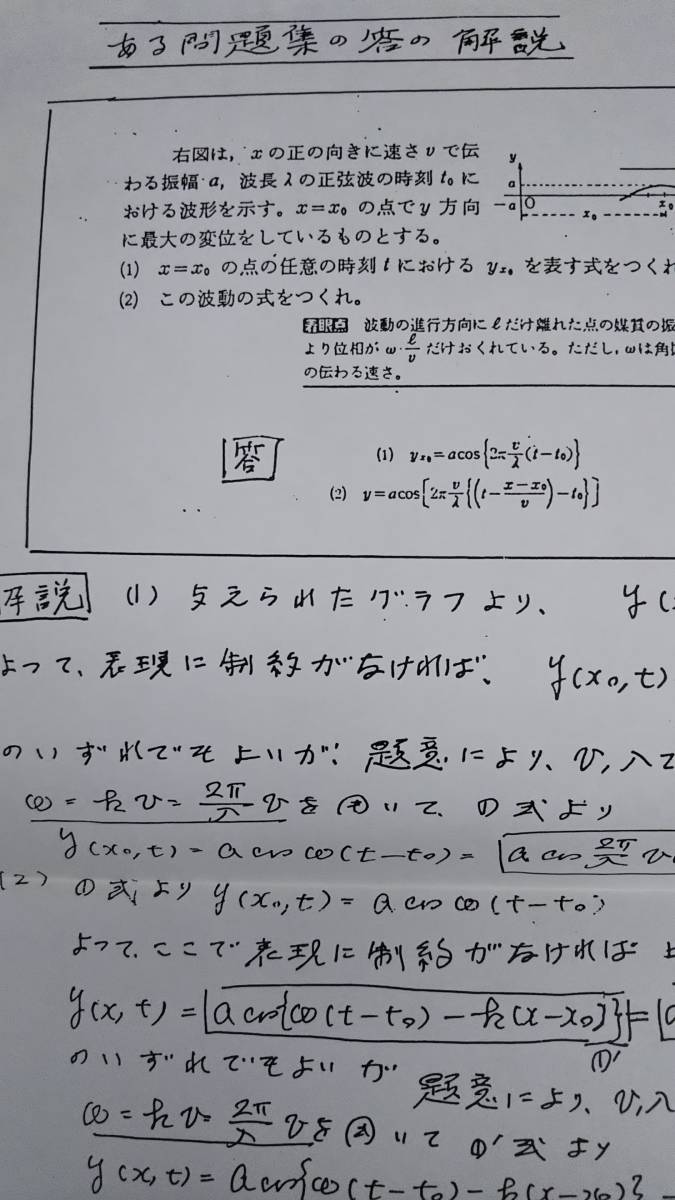 ある問題集の答の解説
右図は，xの正の向きに速さvで伝
わる振幅a，波長λの正弦波の時刻t₀に
おける波形を示す。x=x₀の点でy方向
に最大の変位をしているものとする。
y
a
-a
O
x₀
x₀
(1) x=x₀の点の任意の時刻tにおけるyx₀を表す式をつくれ
(2) この波動の式をつくれ。
着眼点 波動の進行方向にℓだけ離れた点の媒質の振
より位相がω・ℓ/vだけおくれている。ただし，ωは角
の伝わる速さ。
答
(1) yx₀=acos{2π v/λ (t-t₀)}
(2) y=acos[2π v/λ {(t- (x-x₀)/v )-t₀}]
解説 (1) 与えられたグラフより、 y(
よって、表現に制約がなければ、 y(x₀,t)
のいずれでもよいが、題意により、v,λで
ω=kv=2π/λ vを用いて、①式より
y(x₀,t)=a cos ω(t-t₀)=a cos 2π/λ v
(2) ①式より y(x₀,t)=a cos ω(t-t₀)
よって、ここで表現に制約がなければ
y(x,t)=a cos{ω(t-t₀)-k(x-x₀)}=
①'
のいずれでもよいが 題意により、v,λ
ω=kv=2π/λ vを用いて ①'式より
y(x,t)=a cos{ω(t-t₀)-k(x-x₀)}